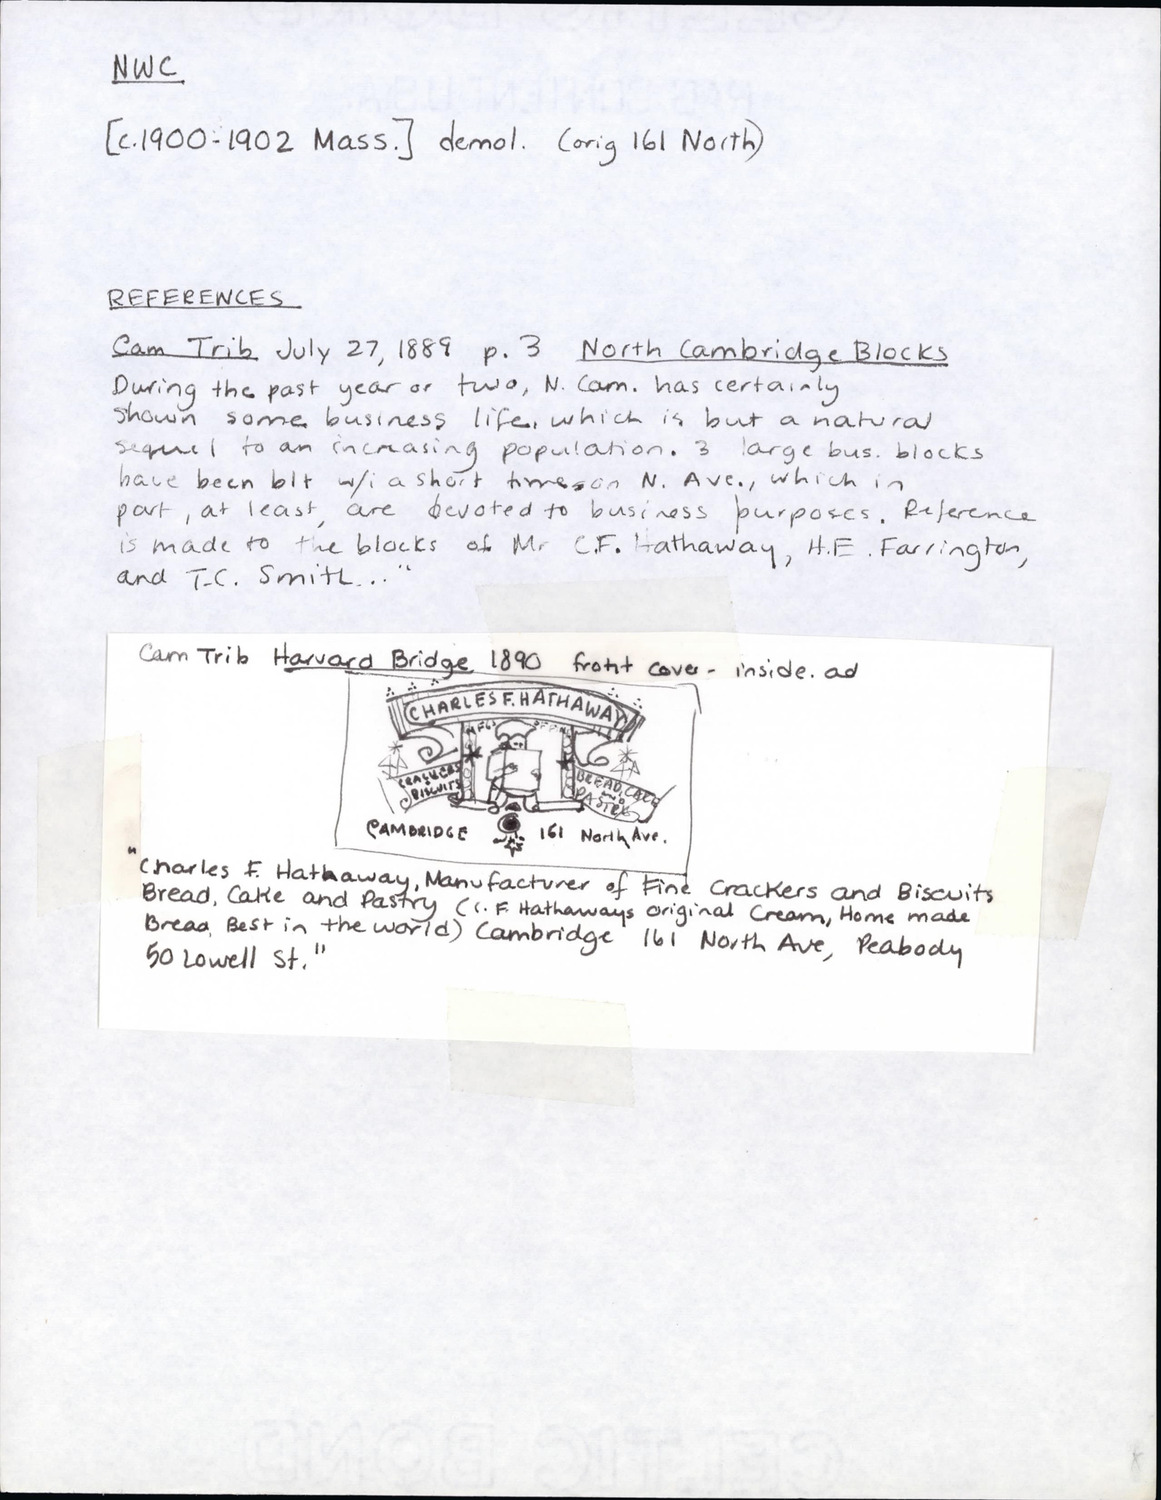 NWC
[c.1900-1902 Mass.] demol. (orig 161 North)
REFERENCES
Cam Trib July 27, 1889 p. 3 North Cambridge Blocks
During the past year or two, N. Cam. has certainly
shown some business life, which is but a natural
sequel to an increasing population. 3 large bus. blocks
have been blt w/i a short time on N. Ave., which in
part, at least, are devoted to business purposes. Reference
is made to the blocks of Mr C.F. Hathaway, H.E. Farrington,
and T.C. Smith..."
Cam Trib Harvard Bridge 1890 front cover - inside. ad
CHARLES F. HATHAWAY
MFG OF FINE
CRACKERS
BISCUITS
BREAD, CAKE
AND
PASTRY
CAMBRIDGE 161 North Ave.
"Charles F. Hathaway, Manufacturer of Fine Crackers and Biscuits
Bread, Cake and Pastry (C.F. Hathaways original Cream, Home made
Bread, Best in the world) Cambridge 161 North Ave, Peabody
50 Lowell St."
CELTIC BOND